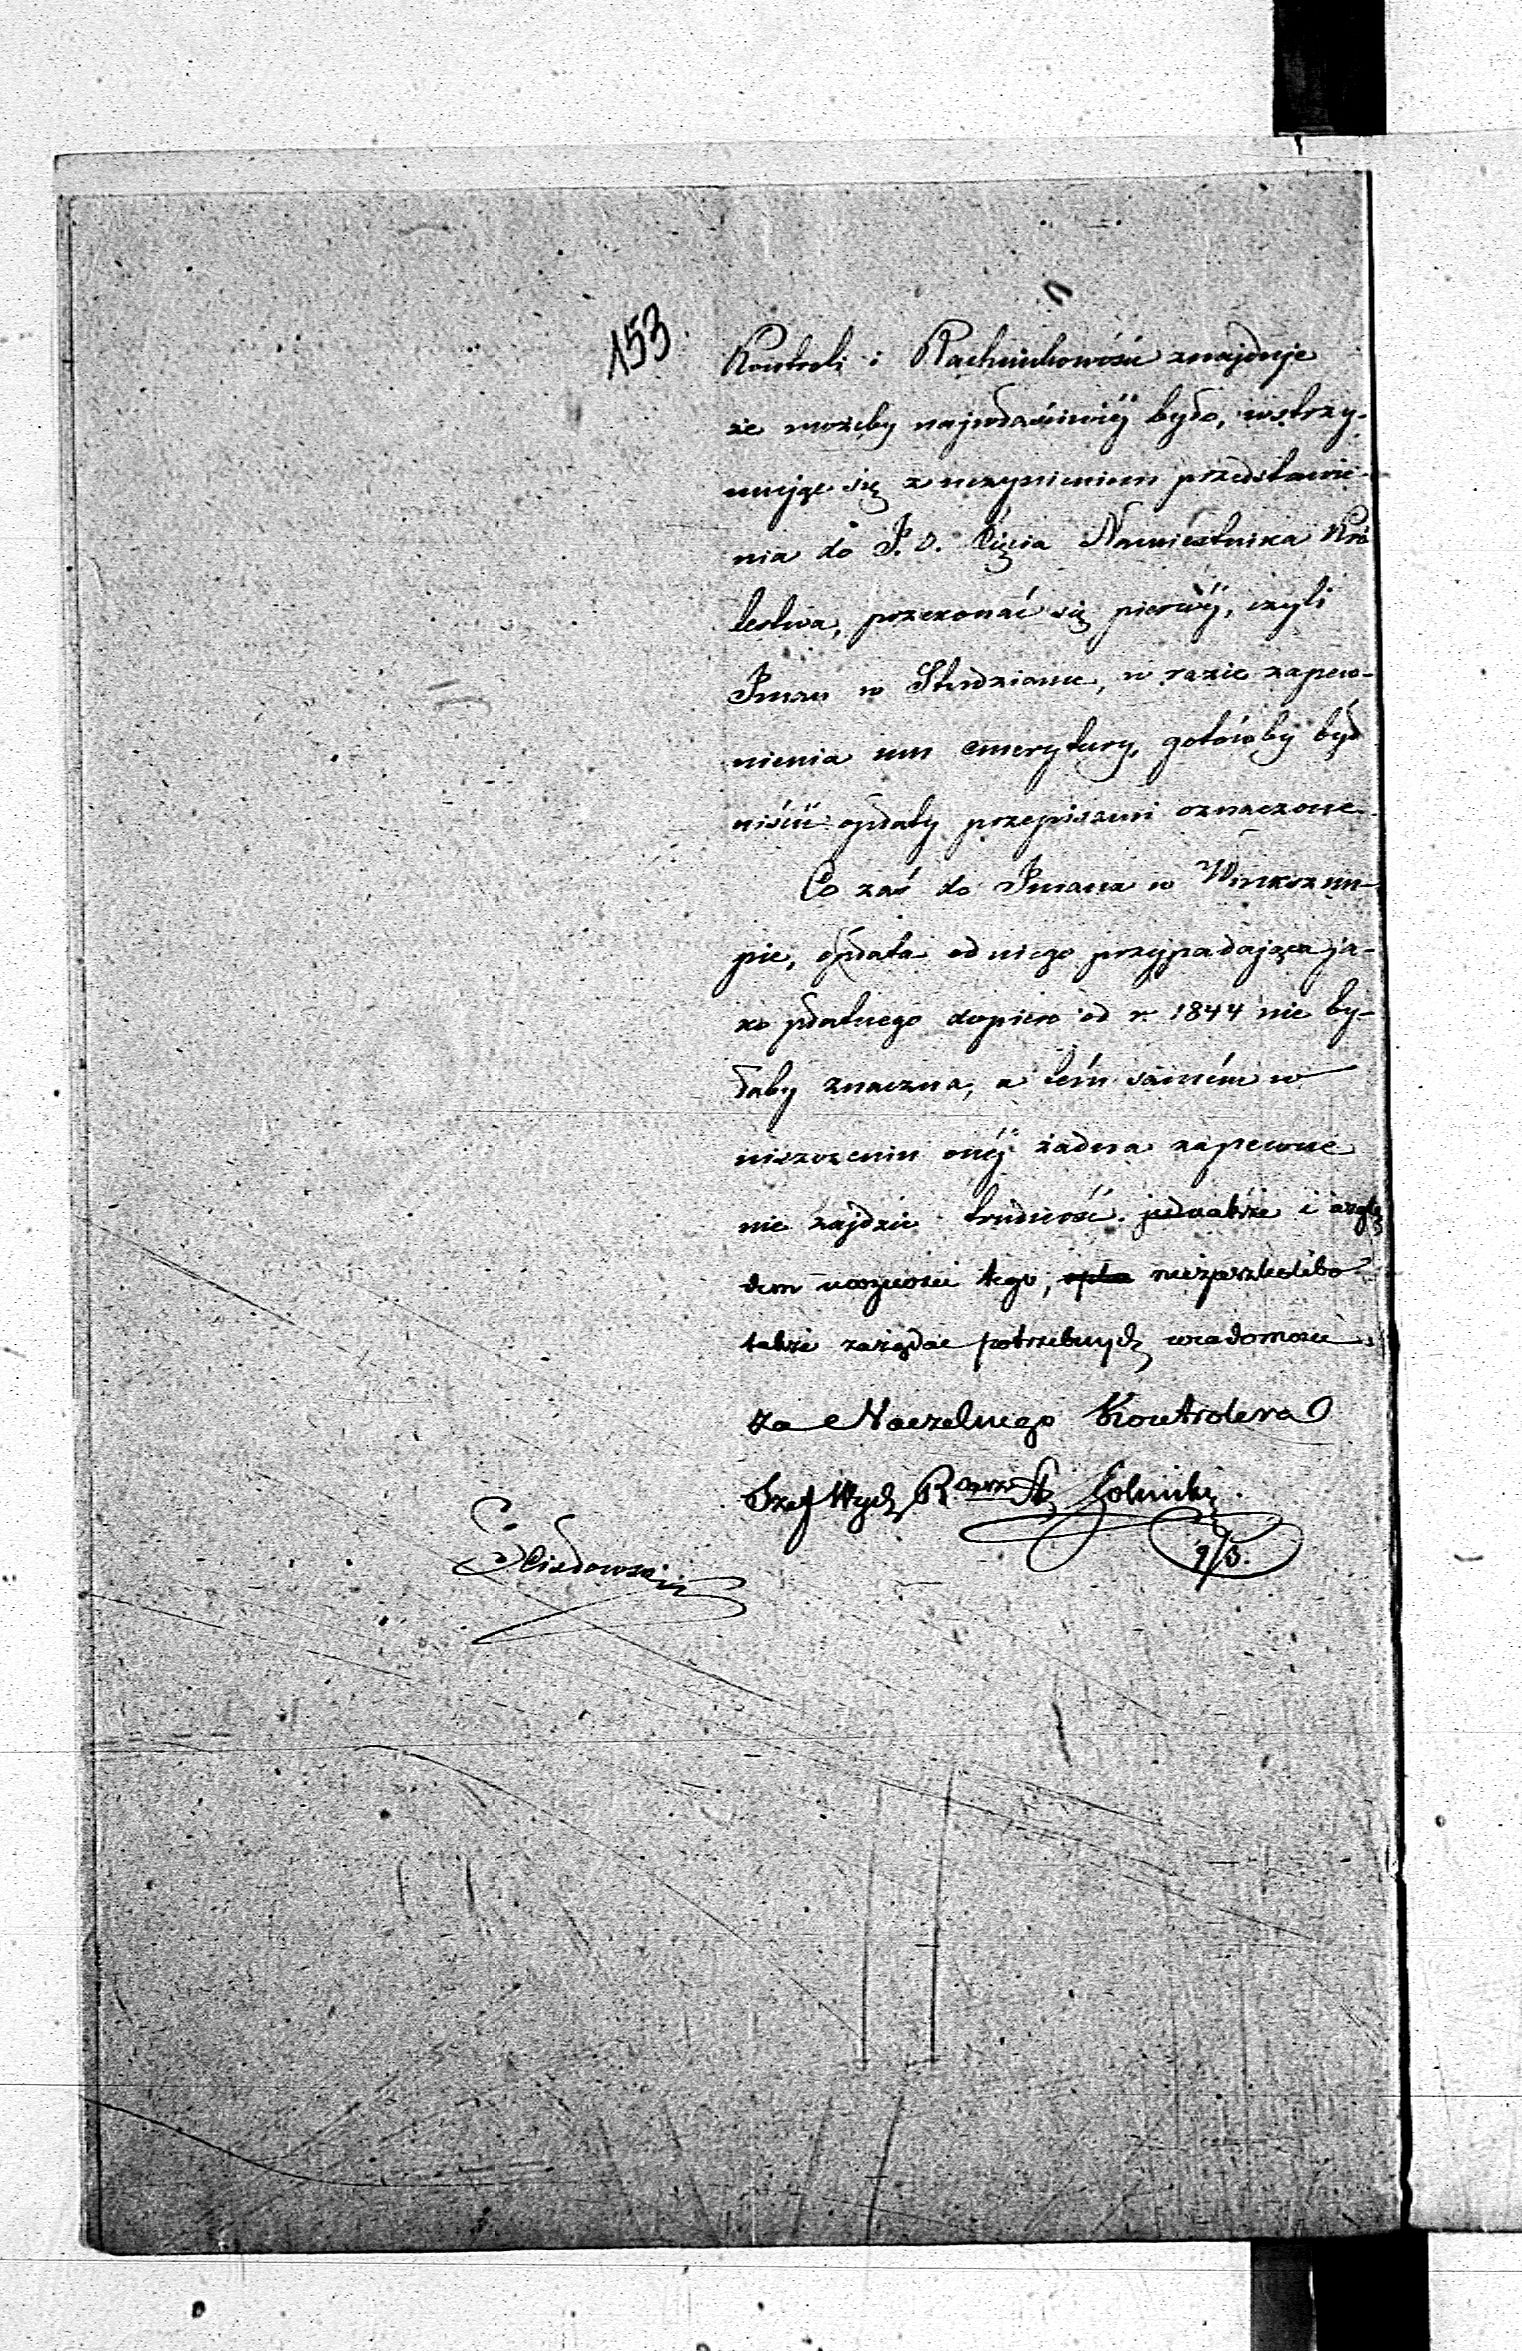 153.
Kontroli i Rachunkowości znajduje
że możeby najwłaściwiéj było, wstrzy-
mując się z uczynieniem przedstawie-
nia do J. O. Xięcia Namiestnika Kró
lestwa, przekonać się pierwéj, czyli
Imam w Studziance, w razie zapew-
nienia mu emerytury, gotówby był
uiścić opłaty przepisami oznaczone.
Co zaś do Imama w Winksznu-
pie, opłata od niego przypadająca ja-
ko płatnego dopiero od r. 1844 nie by-
łaby znaczna, a tém samém w
uiszczeniu onéj żadna zapewne
nie zajdzie trudność. jednakże i wzglę
dem możności tego, nieżaszkodziłoby
także zażądać potrzebnych wiadomości.
za Naczelnego Kontrolera
Szef Wydz
9/3.